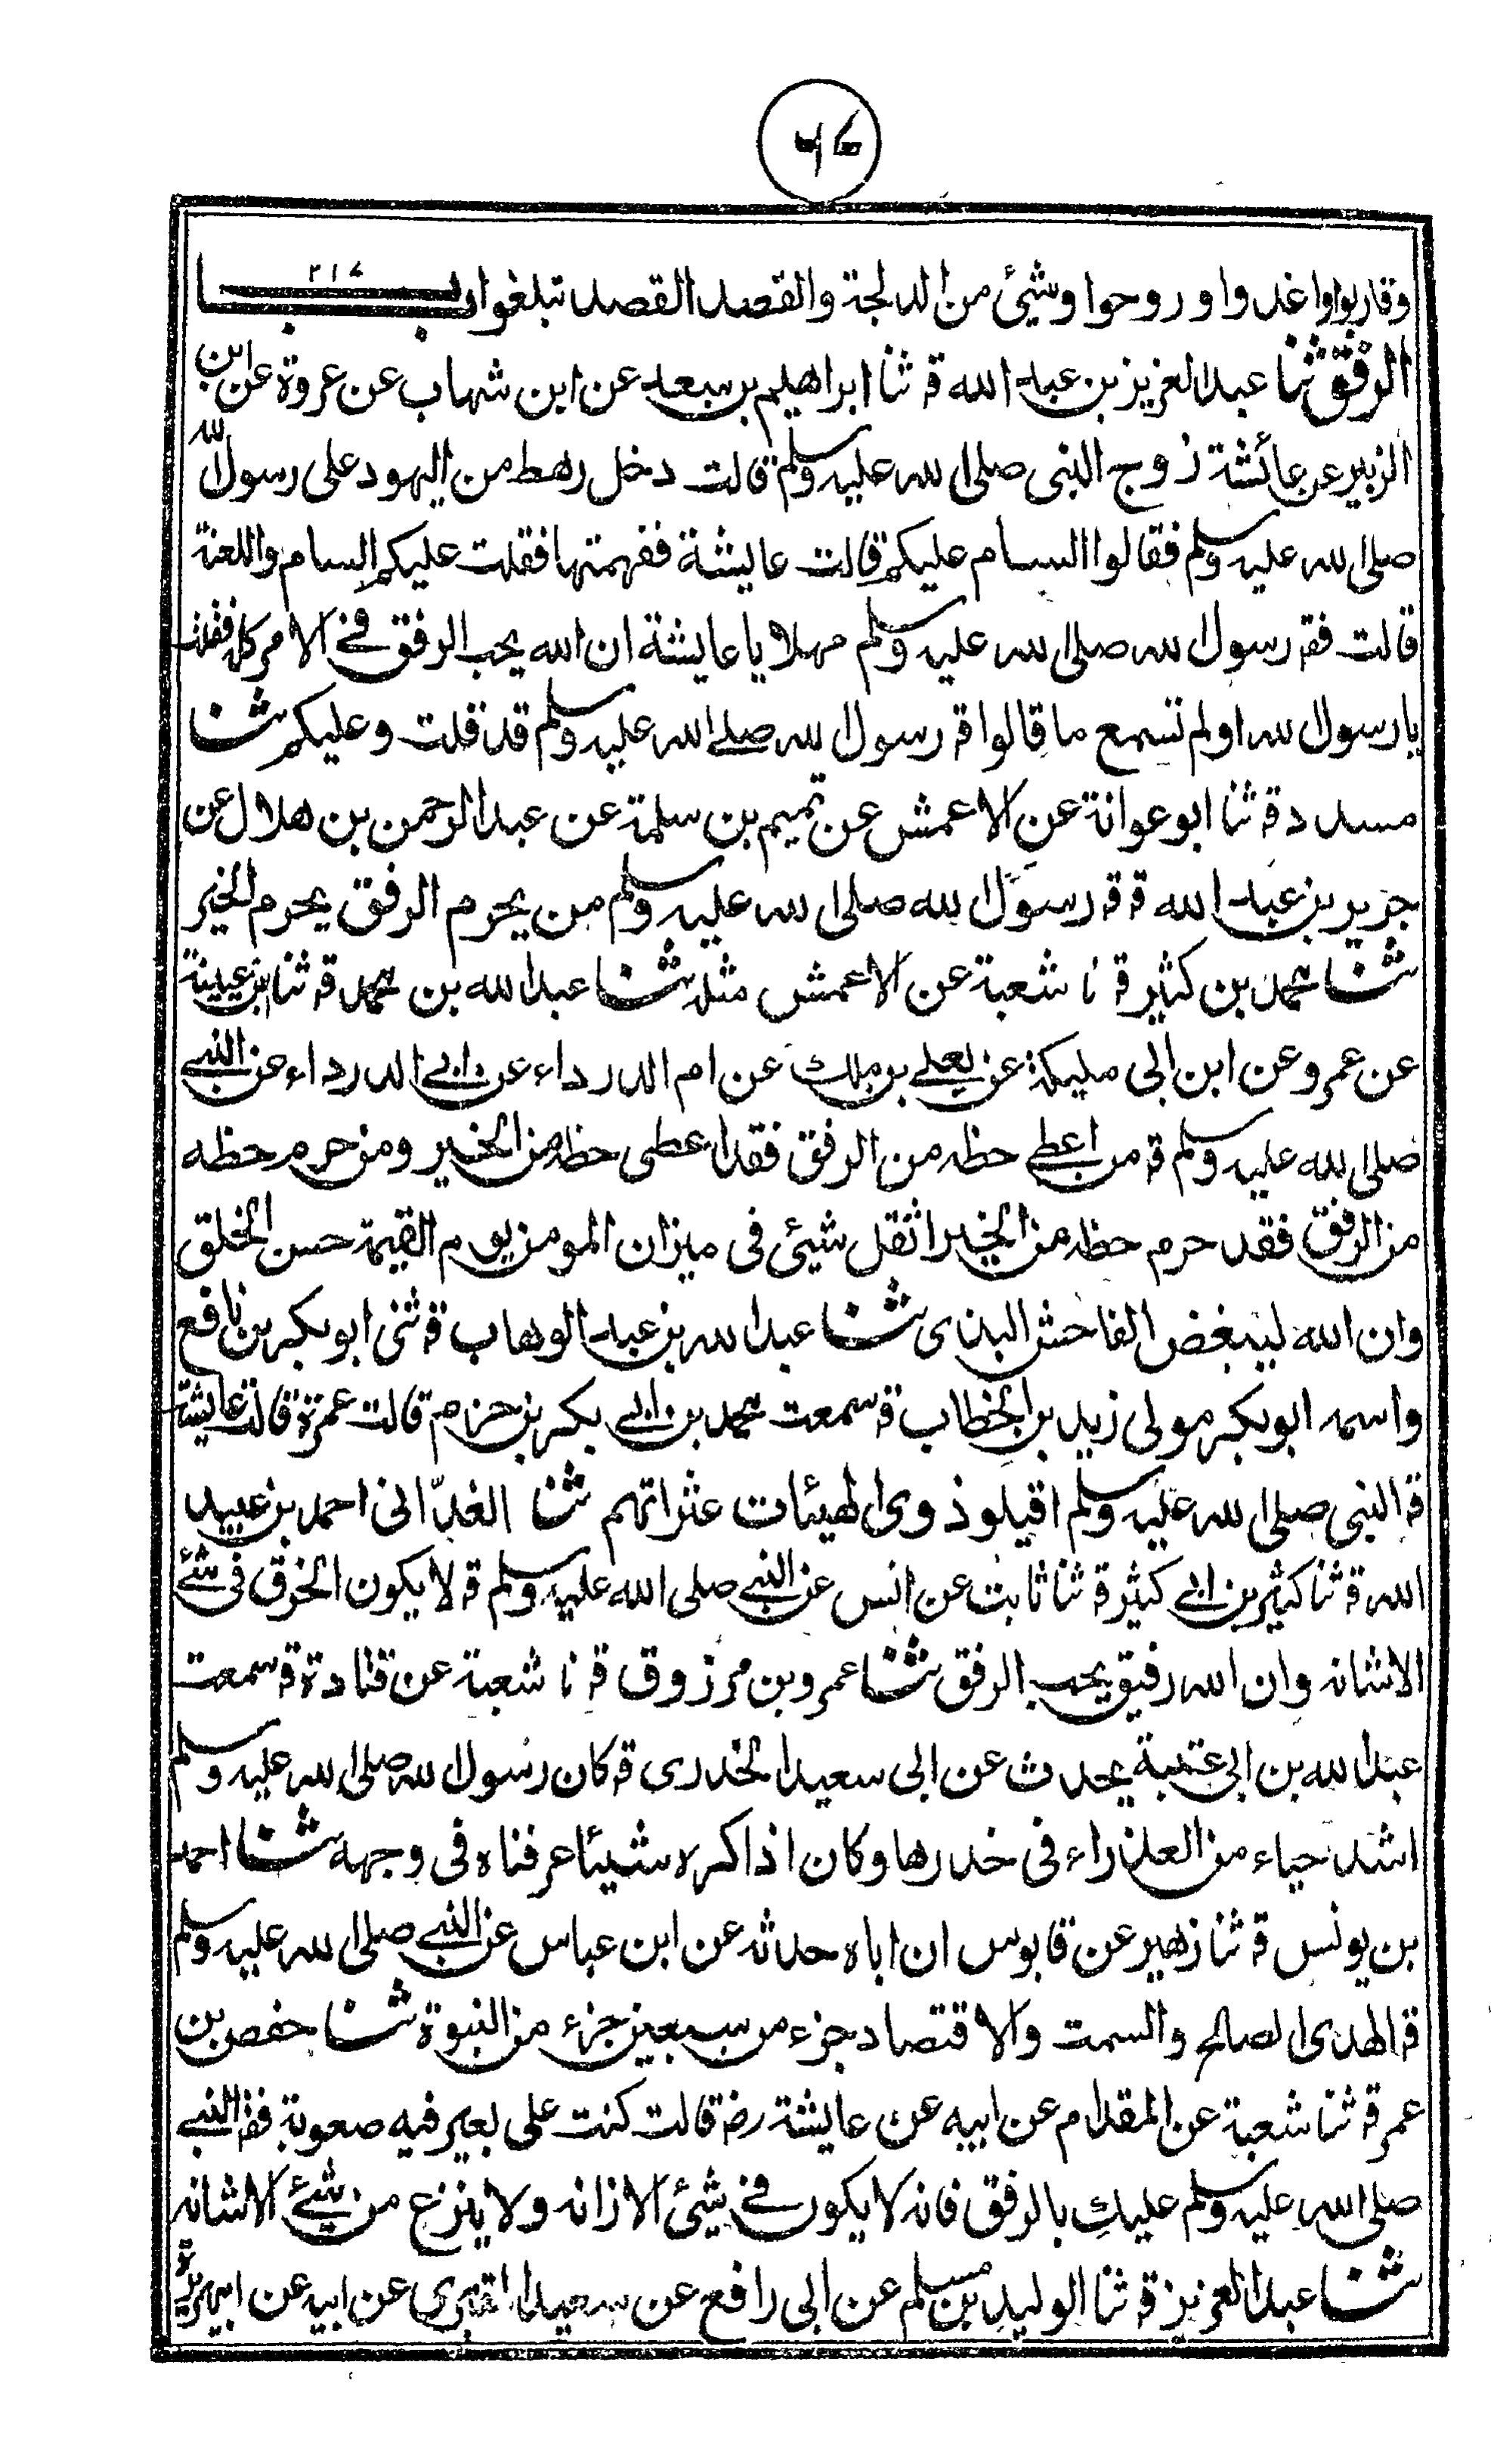 ٧٦
وقاربوا واغدوا وروحوا وشيئ من الدلجة والقصد القصد تبلغوا باب ٢١٧
الرفق ثنا عبد العزيز بن عبد الله قه ثنا ابراهيم بن سعد عن ابن شهاب عن عروة عن ابن
الزبير عن عائشة زوج النبى صلى الله عليه وسلم قالت دخل رهط من اليهود على رسول الله
صلى الله عليه وسلم فقالوا السام عليكم قالت عايشة ففهمتها فقلت عليكم السام واللعنة
قالت فقه رسول الله صلى الله عليه وسلم مهلا يا عايشة ان الله يحب الرفق فى الامر كله فقلت
يا رسول الله اولم تسمع ما قالوا قه رسول الله صلى الله عليه وسلم قد قلت وعليكم ثنا
مسدد قه ثنا ابو عوانة عن الاعمش عن تميم بن سلمة عن عبد الرحمن بن هلال عن
جرير بن عبد الله قه قه رسول الله صلى الله عليه وسلم من يحرم الرفق يحرم الخير
ثنا محمد بن كثير قه نا شعبة عن الاعمش مثله ثنا عبد الله بن محمد قه ثنا ابن عيينة
عن عمرو عن ابن ابى مليكة عن يعلى بن مملك عن ام الدرداء عن ابى الدرداء عن النبى
صلى الله عليه وسلم قه من اعطى حظه من الرفق فقد اعطى حظه من الخير ومن حرم حظه
من الرفق فقد حرم حظه من الخير اثقل شيئ فى ميزان المومن يوم القيمة حسن الخلق
وان الله ليبغض الفاحش البذى ثنا عبد الله بن عبد الوهاب قه ثنى ابو بكر بن نافع
واسمه ابو بكر مولى زيد بن الخطاب قه سمعت محمد بن ابى بكر بن حزم قالت عمرة قالت عايشة
قه النبى صلى الله عليه وسلم اقيلو ذوى الهيئات عثراتهم ثنا الغدّانى احمد بن عبيد
الله قه ثنا كثير بن ابى كثير قه ثنا ثابت عن انس عن النبى صلى الله عليه وسلم قه لا يكون الخرق فى شئ
الا شانه وان الله رفيق يحب الرفق ثنا عمرو بن مرزوق قه نا شعبة عن قتادة قه سمعت
عبد الله بن ابى عتبة يحدث عن ابى سعيد الخدرى قه كان رسول الله صلى الله عليه وسلم
اشد حياء من العذراء فى خدرها وكان اذا كره شيئا عرفناه فى وجهه ثنا احمد
بن يونس قه ثنا زهير عن قابوس ان اباه حدثه عن ابن عباس عن النبى صلى الله عليه وسلم
قه الهدى الصالح والسمت والاقتصاد جزء من سبعين جزء من النبوة ثنا حفص بن
عمر قه ثنا شعبة عن المقدام عن ابيه عن عايشة رضه قالت كنت على بعير فيه صعوبة فقه النبى
صلى الله عليه وسلم عليك بالرفق فانه لا يكون فى شيئ الا زانه ولا ينزع من شيئ الا شانه
ثنا عبد العزيز قه ثنا الوليد بن مسلم عن ابى رافع عن سعيد المقبرى عن ابيه عن ابى هريرة